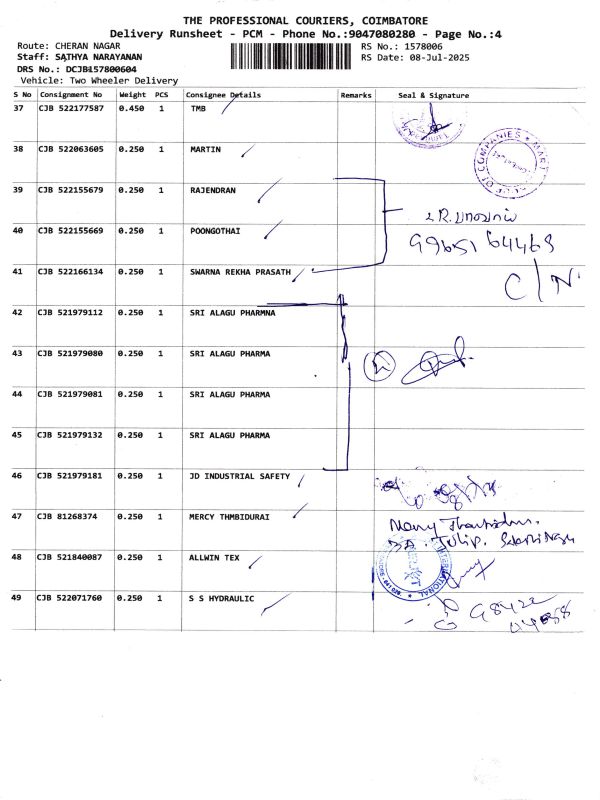 THE PROFESSIONAL COURIERS, COIMBATORE
Delivery Runsheet - PCM - Phone No.:9047080280 - Page No.:4
Route: CHERAN NAGAR RS No.: 1578006
Staff: SATHYA NARAYANAN RS Date: 08-Jul-2025
DRS No.: DCJB157800604
Vehicle: Two Wheeler Delivery
S No Consignment No Weight PCS Consignee Details Remarks Seal & Signature
37 CJB 522177587 0.450 1 TMB
38 CJB 522063605 0.250 1 MARTIN
39 CJB 522155679 0.250 1 RAJENDRAN
40 CJB 522155669 0.250 1 POONGOTHAI
99651 64463
41 CJB 522166134 0.250 1 SWARNA REKHA PRASATH C/N
42 CJB 521979112 0.250 1 SRI ALAGU PHARMNA
43 CJB 521979080 0.250 1 SRI ALAGU PHARMA
44 CJB 521979081 0.250 1 SRI ALAGU PHARMA
45 CJB 521979132 0.250 1 SRI ALAGU PHARMA
46 CJB 521979181 0.250 1 JD INDUSTRIAL SAFETY
47 CJB 81268374 0.250 1 MERCY THMBIDURAI
48 CJB 521840087 0.250 1 ALLWIN TEX
49 CJB 522071760 0.250 1 S S HYDRAULIC